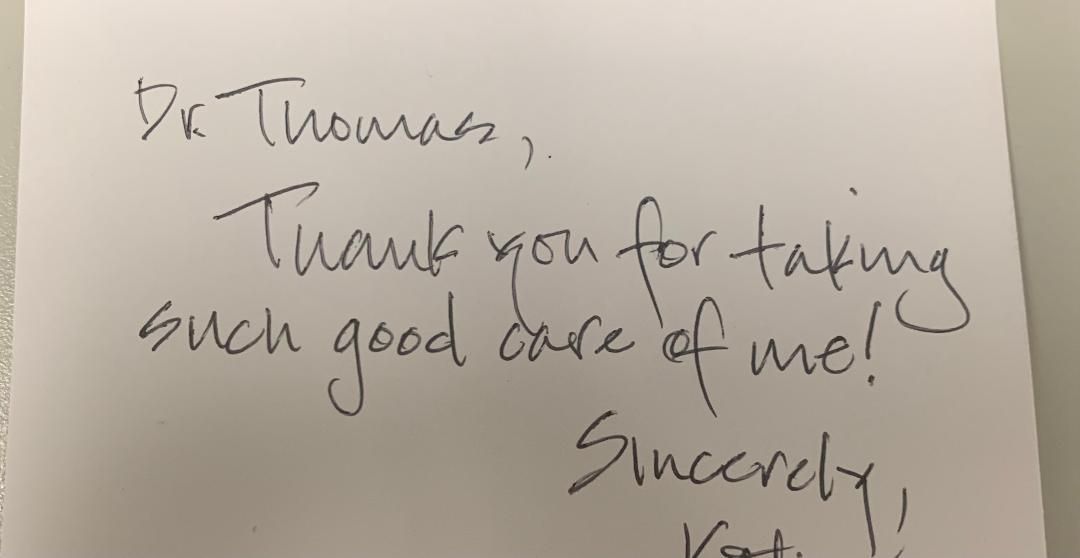 Dr. Thomas,
Thank you for taking
such good care of me!
Sincerely,